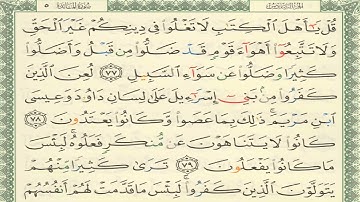 قُلْ يَٰٓأَهْلَ ٱلْكِتَٰبِ لَا تَغْلُوا۟ فِى دِينِكُمْ غَيْرَ ٱلْحَقِّ
وَلَا تَتَّبِعُوٓا۟ أَهْوَآءَ قَوْمٍ قَدْ ضَلُّوا۟ مِن قَبْلُ وَأَضَلُّوا۟
كَثِيرًا وَضَلُّوا۟ عَن سَوَآءِ ٱلسَّبِيلِ ٧٧ لُعِنَ ٱلَّذِينَ
كَفَرُوا۟ مِنۢ بَنِىٓ إِسْرَٰٓءِيلَ عَلَىٰ لِسَانِ دَاوُۥدَ وَعِيسَى
ٱبْنِ مَرْيَمَ ۚ ذَٰلِكَ بِمَا عَصَوا۟ وَّكَانُوا۟ يَعْتَدُونَ ٧٨
كَانُوا۟ لَا يَتَنَاهَوْنَ عَن مُّنكَرٍ فَعَلُوهُ ۚ لَبِئْسَ
مَا كَانُوا۟ يَفْعَلُونَ ٧٩ تَرَىٰ كَثِيرًا مِّنْهُمْ
يَتَوَلَّوْنَ ٱلَّذِينَ كَفَرُوا۟ ۚ لَبِئْسَ مَا قَدَّمَتْ لَهُمْ أَنفُسُهُمْ